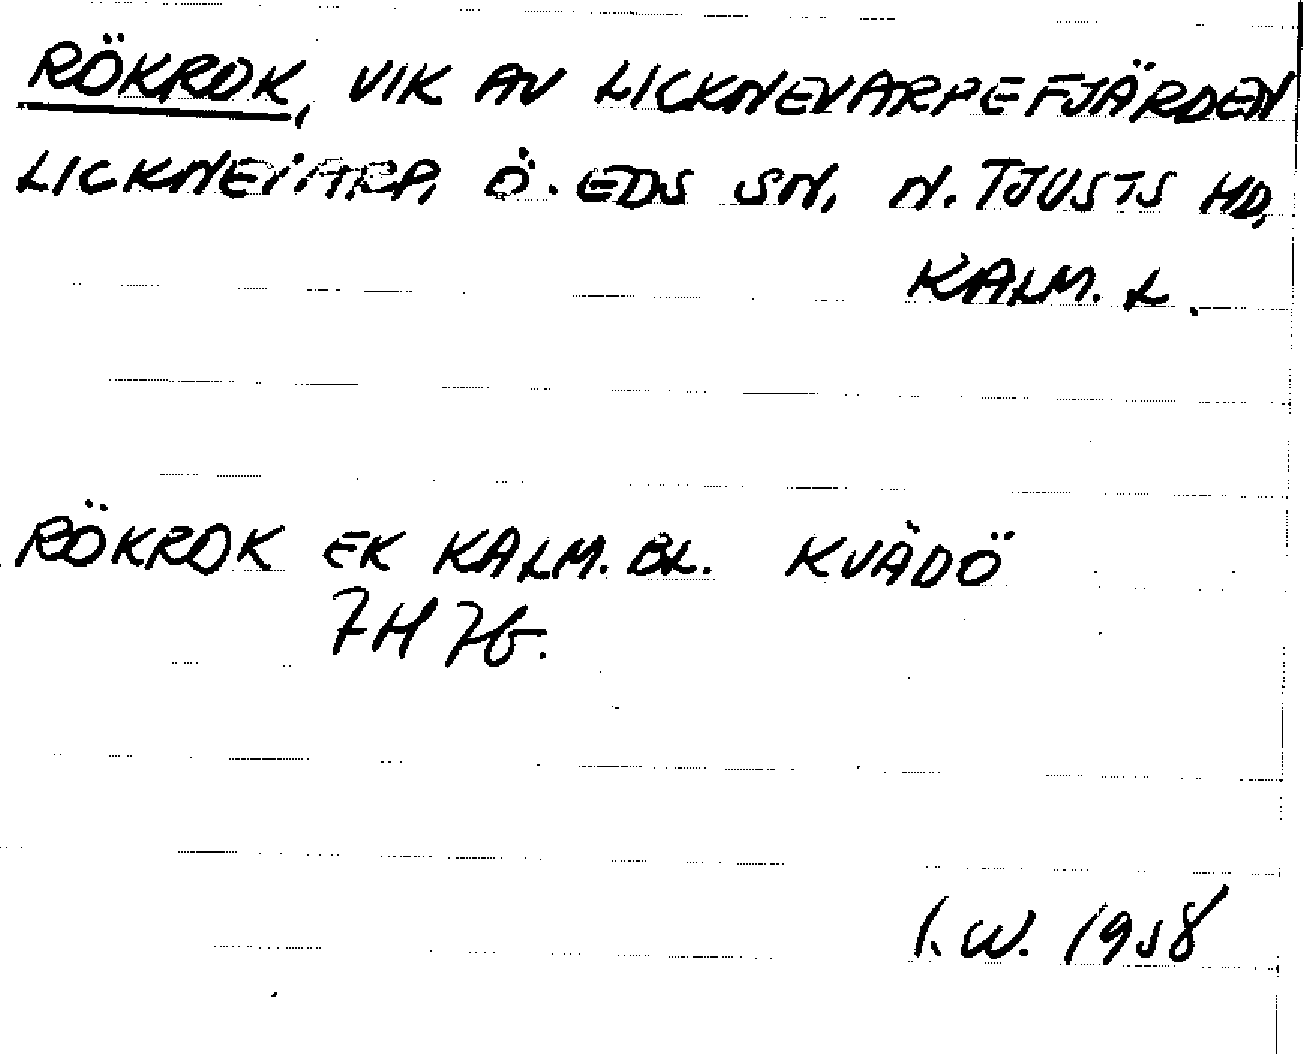 RÖKROK, VIK AV LICKNEVARPEFJÄRDEN
LICKNEVARP, Ö. EDS SN, N. TJUSTS HD,
KALM. L.
RÖKROK EK KALM. BL. KVÄDÖ
7H 7G.
I. W. 1958